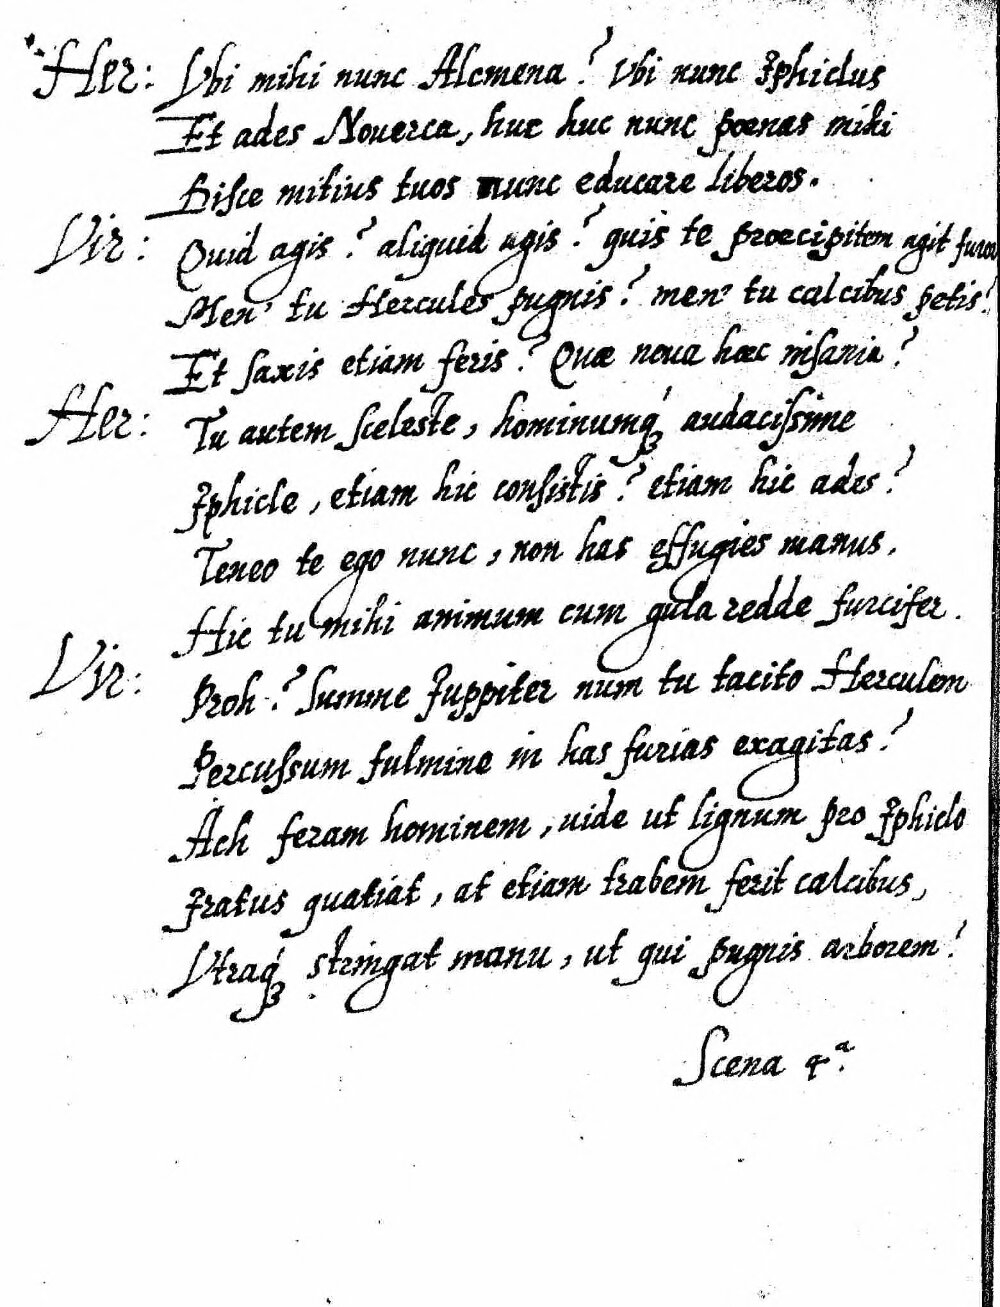 Her: Vbi mihi nunc Alcmena? Vbi nunc Iphiclus
Et ades Nouerca, huc huc nunc poenas mihi
Disce mitius tuos nunc educare liberos.
Vir: Quid agis? aliquid agis? quis te præcipitem agit furor
Men' tu Hercules pugnis? men' tu calcibus petis?
Et saxis etiam feris? Quæ noua hæc insania?
Her: Tu autem sceleste, hominumq́ꝫ audacissime
Iphicle, etiam hic consistis? etiam hic ades?
Teneo te ego nunc, non has effugies manus.
Hic tu mihi animum cum gula redde furcifer.
Vir: Proh? Summe Juppiter num tu tacito Herculem
Percussum fulmine in has furias exagitas?
Ach feram hominem, uide ut lignum pro Iphiclo
Iratus quatiat, at etiam trabem ferit calcibus,
Vtraq́ꝫ stringat manu, ut qui pugnis arborem!
Scena 4ᵃ.